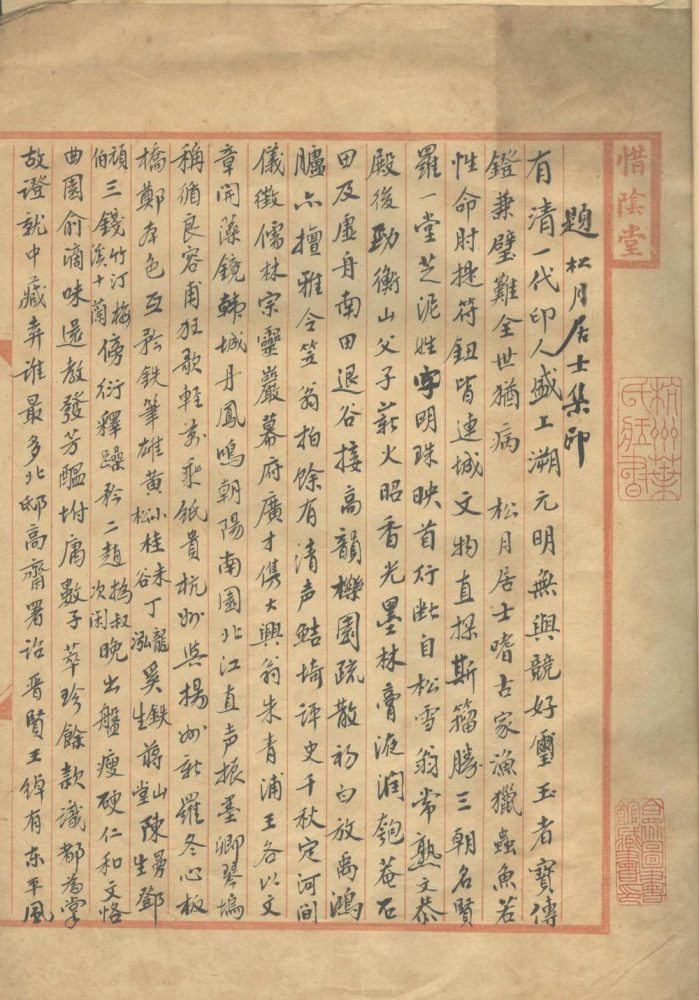 惜陰堂
題松月居士集印
有清一代印人盛上溯元明無與競好璽玉者寶傳
鐙兼璧難全世猶病 松月居士嗜古家漁獵蟲魚若
性命肘提符鈕皆連城文物直探斯籀勝三朝名賢
羅一堂芝泥姓字明珠映首行斷自松雪翁常熟文恭
殿後勁衡山父子薪火昭香光墨林膏液潤匏菴石
田及虛舟南田退谷接高韻櫟園疏散初白放禹鴻
臚亦擅雅令笠翁拍餘有清声鮚埼評史千秋定河間
儀徵儒林宗靈巖幕府廣才儁大興翁朱青浦王各以文
章開藻鏡韩城丹鳳鳴朝陽南園北江直声振墨卿琴塢
稱循良容甫狂歌輕萬乘紙貴杭州與揚州新羅冬心板
橋鄭本色互矜鉄筆雄黃小松桂未谷丁龍泓奚鉄生蔣山堂陳曼生鄧
頑伯三錢竹汀梅溪十蘭傍衍釋躁矜二趙撝叔次閑晚出盤瘦硬仁和文恪
曲園俞滴味還教發芳醞坿庽數子萃珍餘款識都為掌
故證就中藏弆誰最多北邸高齋署詒晉賢王綽有東平風
杭州葉氏藏書